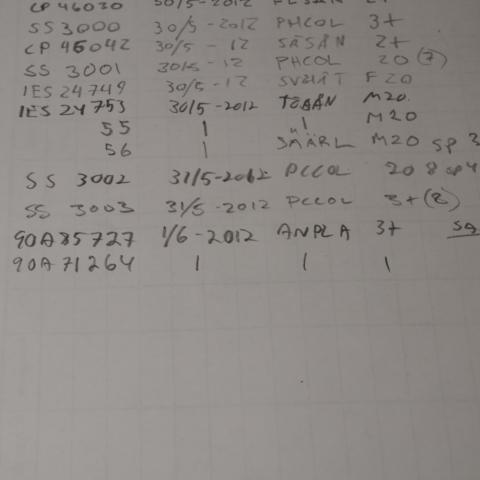 CP 46030 30/5-2012
SS 3000 30/5-2012 PHCOL 3+
CP 46042 30/5-12 SÄSÅN 2+
SS 3001 30/5-12 PHCOL 20 (7)
IES 24749 30/5-12 SVHÄT F20
IES 24753 30/5-2012 TOBÅN M20
55 | | M20
56 | SMÄRL M20 SP 3
SS 3002 31/5-2012 PCCOL 20 8 SP4
SS 3003 31/5-2012 PCCOL 3+(8)
90A85727 1/6-2012 ANPLA 3+
90A71264 | | |